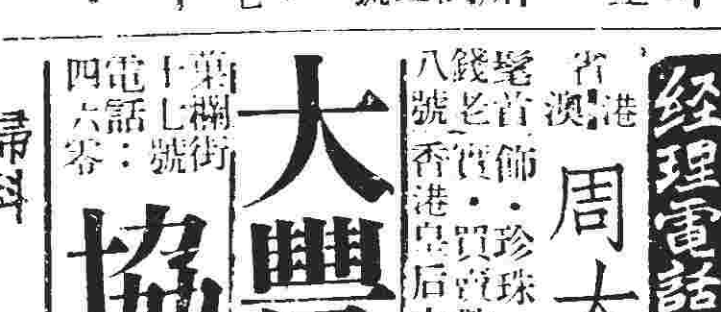 経理電話
省港澳
周大
髦首飾・珍珠
錢老實・買賣
八號 香港皇后
大豐
菓欄街
十七號
電話：
四六零
協
婦科